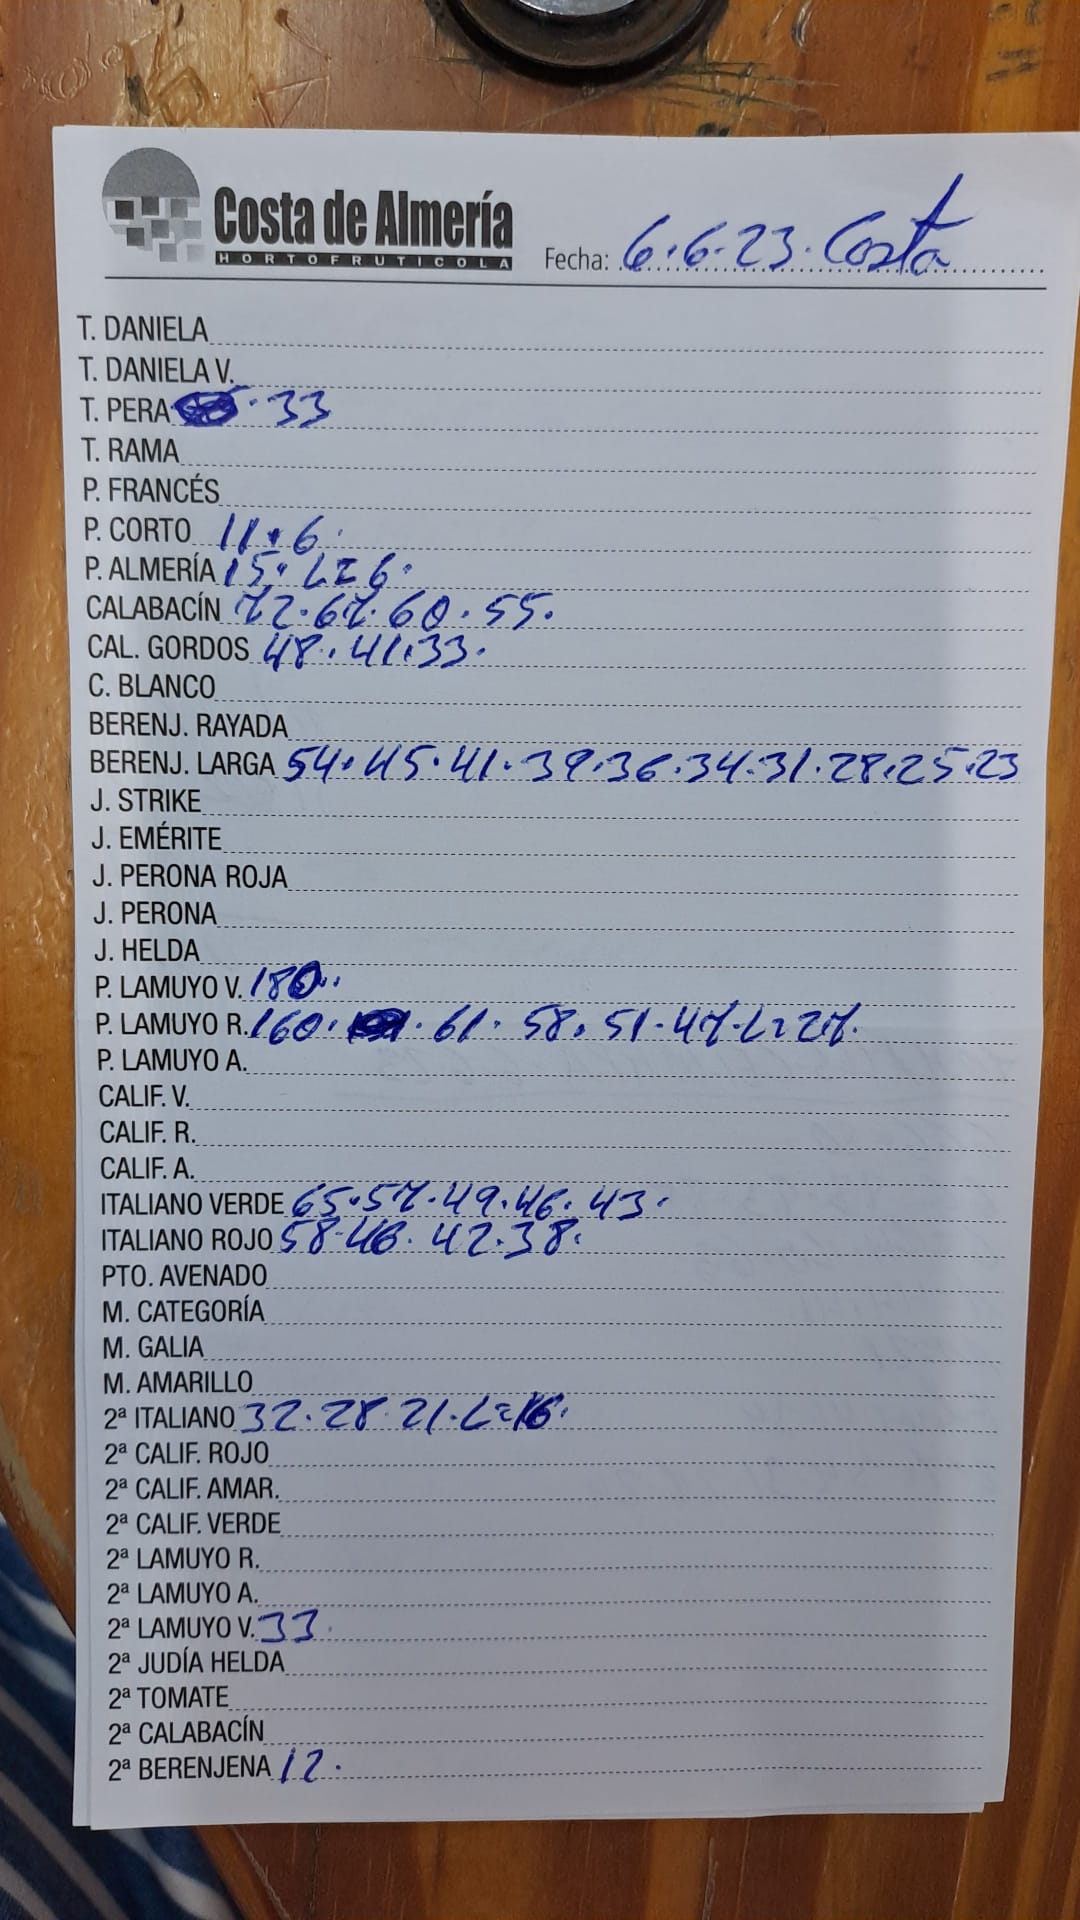 Costa de Almería
HORTOFRUTICOLA
Fecha: 6.6.23. Costa
T. DANIELA
T. DANIELA V.
T. PERA . 33
T. RAMA
P. FRANCÉS
P. CORTO 11.6.
P. ALMERÍA 15. L=6.
CALABACÍN 72.67.60.55.
CAL. GORDOS 48.41.33.
C. BLANCO
BERENJ. RAYADA
BERENJ. LARGA 54.45.41.39.36.34.31.28.25.23
J. STRIKE
J. EMÉRITE
J. PERONA ROJA
J. PERONA
J. HELDA
P. LAMUYO V. 180..
P. LAMUYO R. 160. . 61. 58. 51. 47. L=27.
P. LAMUYO A.
CALIF. V.
CALIF. R.
CALIF. A.
ITALIANO VERDE 65.57.49.46.43.
ITALIANO ROJO 58.46.42.38.
PTO. AVENADO
M. CATEGORÍA
M. GALIA
M. AMARILLO
2ª ITALIANO 32.28.21.L=16.
2ª CALIF. ROJO
2ª CALIF. AMAR.
2ª CALIF. VERDE
2ª LAMUYO R.
2ª LAMUYO A.
2ª LAMUYO V. 33.
2ª JUDÍA HELDA
2ª TOMATE
2ª CALABACÍN
2ª BERENJENA 12.